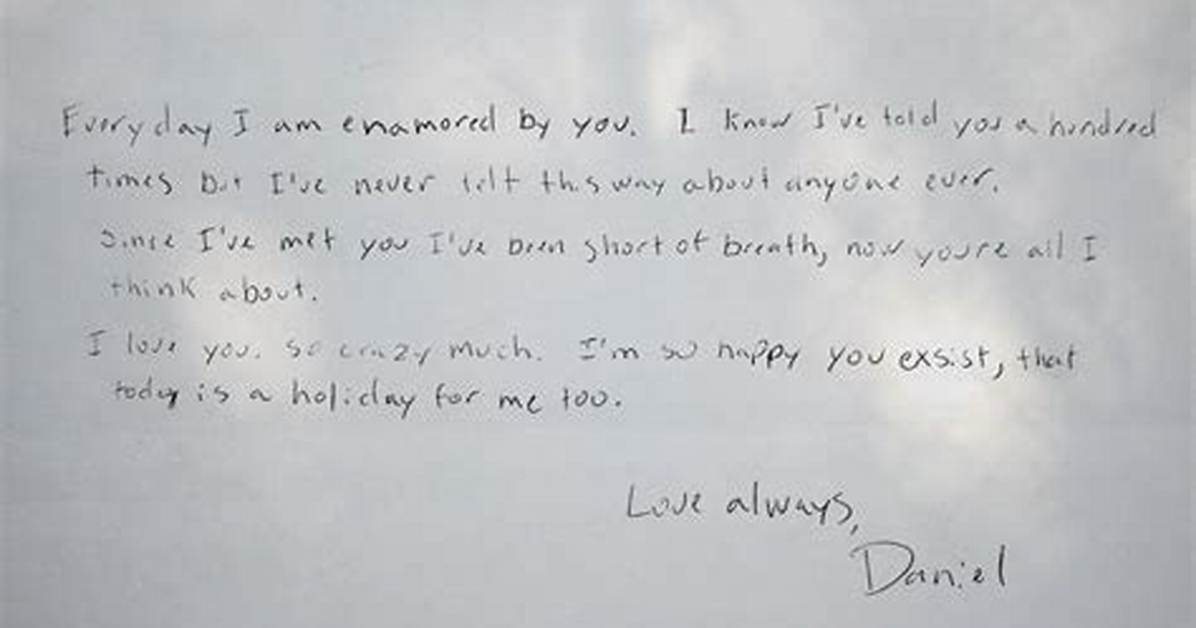 Everyday I am enamored by you. I know I've told you a hundred
times but I've never felt this way about anyone ever.
Since I've met you I've been short of breath, now youre all I
think about.
I love you. so crazy much. I'm so happy you exsist, that
today is a holiday for me too.
Love always,
Daniel